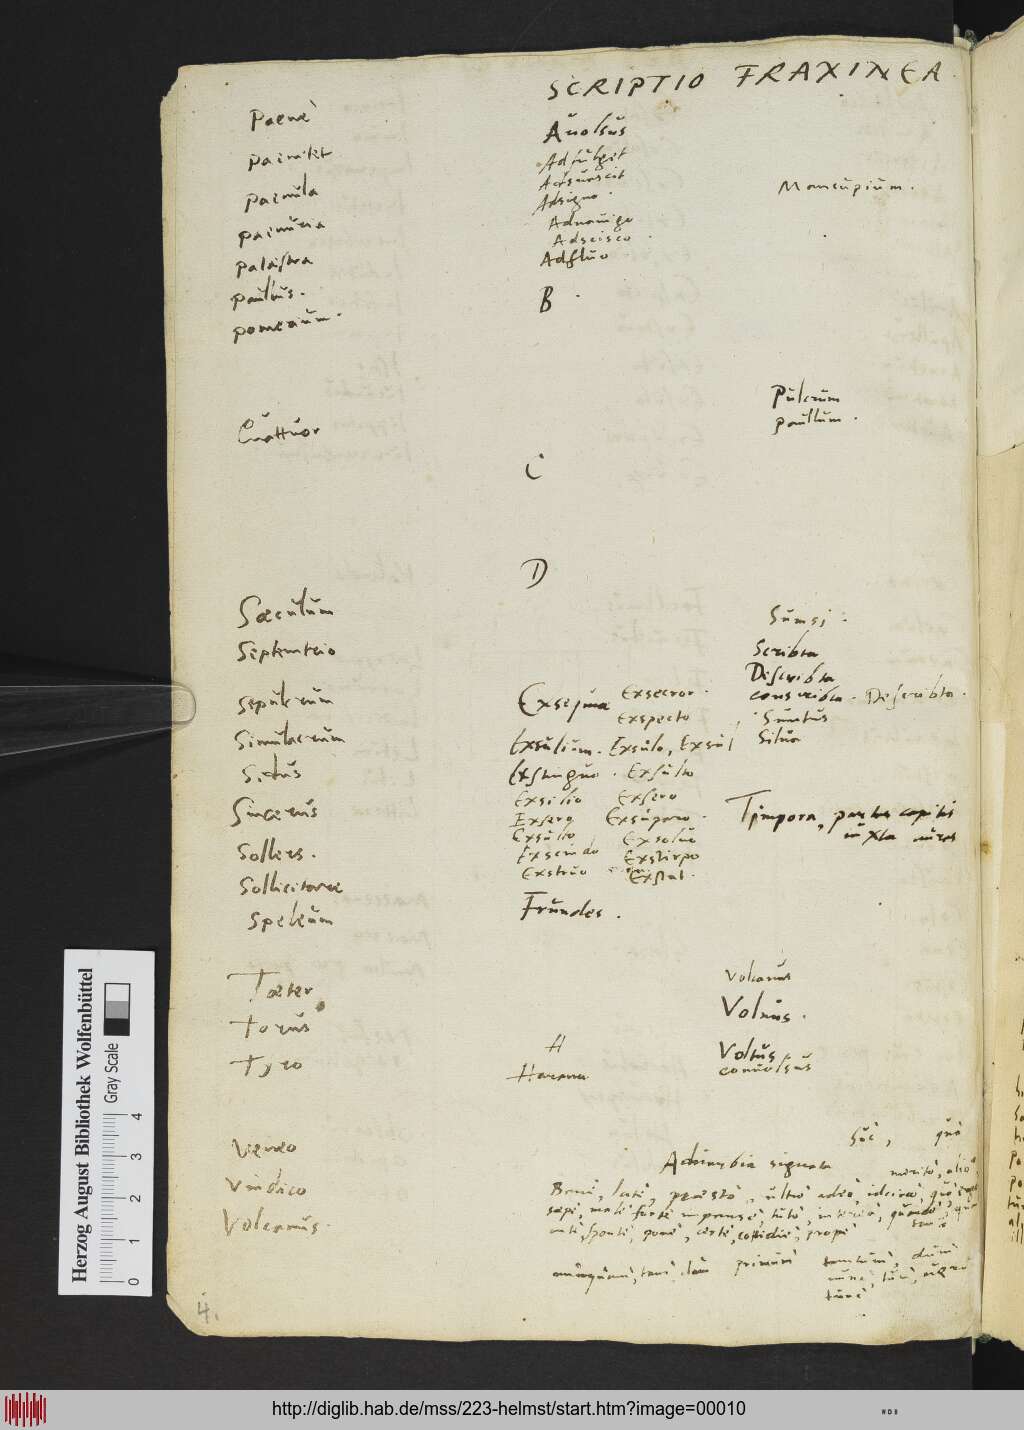 SCRIPTIO FRAXINEA.
Paene
paenitet
paenula
paenuria
palaestra
paullus.
pomerium.
Quattuor
Saeculum
Septentrio
sepulcrum
Simulacrum
Sidus
Sincerus
Sollers.
Sollicitare
Speleum
Taeter
Torus
Tyro
Veneo
Vindico
Volcanus.
Avolsus
Adfulget
Adsuescit
Adsigno
Adnavigo
Adscisco
Adfluo
B
C
D
Exsequia Exsecror.
Exspecto
Exsulium. Exsulo, Exsul
Exstinguo. Exsulto
Exsilio Exsero
Exsero Exsupero.
Exsulto Exsolvo
Exscindo Exstirpo
Exstruo Exstat.
Frundes.
H
Harena
Mancupium.
Pulcrum
paullum.
Sumsi.
Scribta
Describta
conscribta. Describta.
Sumtus
Silua
Timpora, partes capitis
iuxta aures
Volcanus
Volnus.
Voltus
convolsus
Sic, qua
Adverbia signata merito, alio
Bene, late, praesto, ultro adeo, idcirco, quo
sepe, male forte impense, tuto, interea, quando,
ante, sponte, pone, certe, cottidie, prope
nunquam, tam, clam primum tantum, dum
nunc, tum, vero
tunc
4.
Herzog August Bibliothek Wolfenbüttel
Gray Scale
0 1 2 3 4
http://diglib.hab.de/mss/223-helmst/start.htm?image=00010
WDB